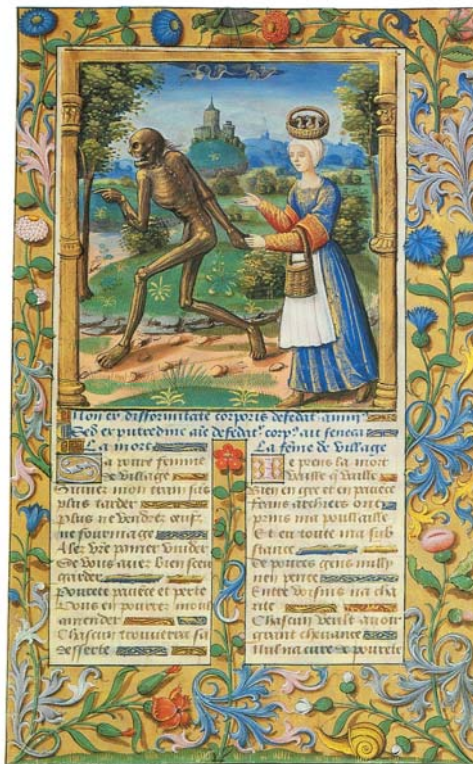 Non ex difformitate corporis defedat animꝰ
Sed ex putredine aĩe defedatᷣ corpꝰ ait seneca
La mort
Sa povre femme
de village
Suivez mon train sãs
plus tarder
plus ne vendrez œufz
ne fourmage
Alez vr̃e panier vuider
Se vous avez bien sceu
garder
Povrete paciẽce et perte
Vous en pourrez moult
amender
Chascun trouvera sa
desserte
La fẽme de village
Je prens la mort
vaille q̃ vaille
Bien en gre et en paciẽce
frans archiers ont
prins ma poullaille
Et eu toute ma sub
stance
de povres gens nully
nen pence
Entre voisins na cha
rite
Chascun veult avoir
grant chevance
Nul na cure de povrete